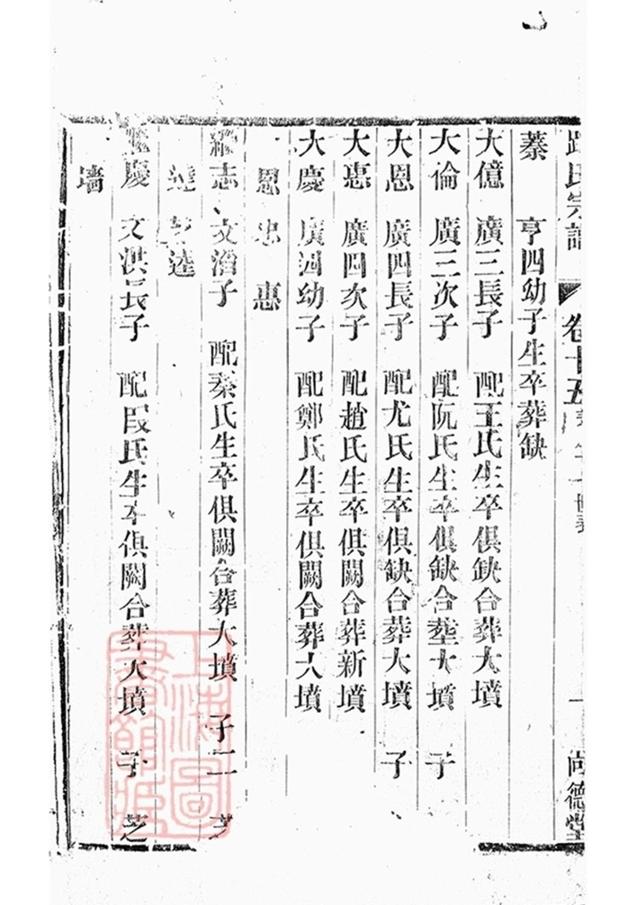 氏宗譜 卷十五 世表 一 尚德堂
蓁 亨四幼子生卒葬缺
大億 廣三長子 配王氏生卒俱缺合葬大墳
大倫 廣三次子 配阮氏生卒俱缺合葬大墳 子
大恩 廣四長子 配尤氏生卒俱缺合葬大墳 子
大惠 廣四次子 配趙氏生卒俱闕合葬新墳
大慶 廣四幼子 配鄭氏生卒俱闕合葬大墳
恩 忠 惠
繼志 文 子 配秦氏生卒俱闕合葬大墳 子二 芝
芝逵
繼慶 文洪長子 配段氏生卒俱闕合葬大墳 子 芝
墻
上海圖書館藏